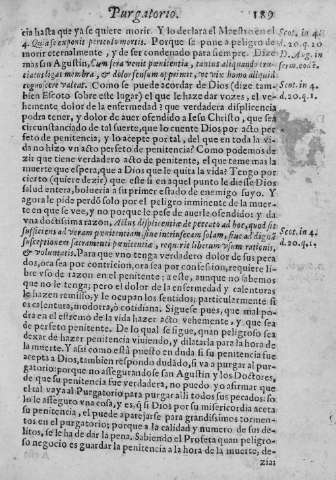 Purgatorio. 189
cia hasta que ya se quiere morir. Y lo declara el Maestro en el
4. Quia se exponit periculo mortis. Porque se pone a peligro de
morir eternalmente, y de ser condenado para siempre. Dize
mas san Agustin, Cum sera venit pœnitentia, tantus aliquando
cruciatus ligat membra, & dolor sensum opprimit, ut vix homo aliquid
cogitare valeat. Como se puede acordar de Dios (dize tam-
bien Escoto sobre este lugar) el que le haze dar vozes, el vehe-
mente dolor de la enfermedad? que verdadera displicencia
podra tener, y dolor de auer ofendido a Iesu Christo, que sea
circunstanciado de tal suerte, que lo cuente Dios por acto per
feto de penitencia, y lo acepte por tal, del que en toda la vi-
da no hizo vn acto perfeto de penitencia? Como podemos de
zir que tiene verdadero acto de penitente, el que teme mas la
muerte que espera, que a Dios que le quita la vida? Tengo por
cierto (quiere dezir) que este si en aquel punto le diesse Dios
salud entera, bolueria a su primer estado de enemigo suyo. Y
agora le pide perdō solo por el peligro inminente de la muer-
te en que se vee, y no porque le pese de auerle ofendido y da
vna doctissima razon, Actus displicentiæ de peccato ad hoc, quod sit
sufficiens ad veram pœnitentiam, siue intrinsecam solam, siue ad dignā
susceptionem sacramenti pœnitentiæ, requirit liberum vsum rationis,
& voluntatis. Para que vno tenga verdadero dolor de sus peca
dos, ora sea por contricion, ora sea por confession, requiere li-
bre vso de razon en el penitente: a este, aunque no sabemos
que no le tenga; pero el dolor de la enfermedad y calenturas
le hazen remisso, y le ocupan los sentidos; particularmente si
es calentura, modorra, o cotidiana. Siguese pues, que mal po-
dra en el estremo de la vida hazer acto vehemente, y que sea
de perfeto penitente. De lo qual se sigue, quan peligroso sea
dexar de hazer penitencia viuiendo, y dilatarla para la hora de
la muerte. Y assi como està puesto en duda si su penitencia fue
acepta a Dios, tambien respondo dudādo, si va a purgar al pur
gatorio: porque no assegurandose san Agustin y los Doctores,
de que su penitencia fue verdadera, no puedo yo afirmar que
el tal vaya al Purgatorio para purgar alli todos sus pecados: so
lo le asseguro vna cosa, y es, q̄ si Dios por su misericordia aceta
su penitencia, el puede aparejarse para grandissimos tormen-
tos en el purgatorio; porque a la calidad y numero de sus de-
litos, se le ha de dar la pena. Sabiendo el Profeta quan peligro-
so negocio es guardar la penitencia a la hora de la muerte, de-
zia:
Scot. in 4.
d. 20. q. 1.
Scot. in 4.
d. 20. q. 1.